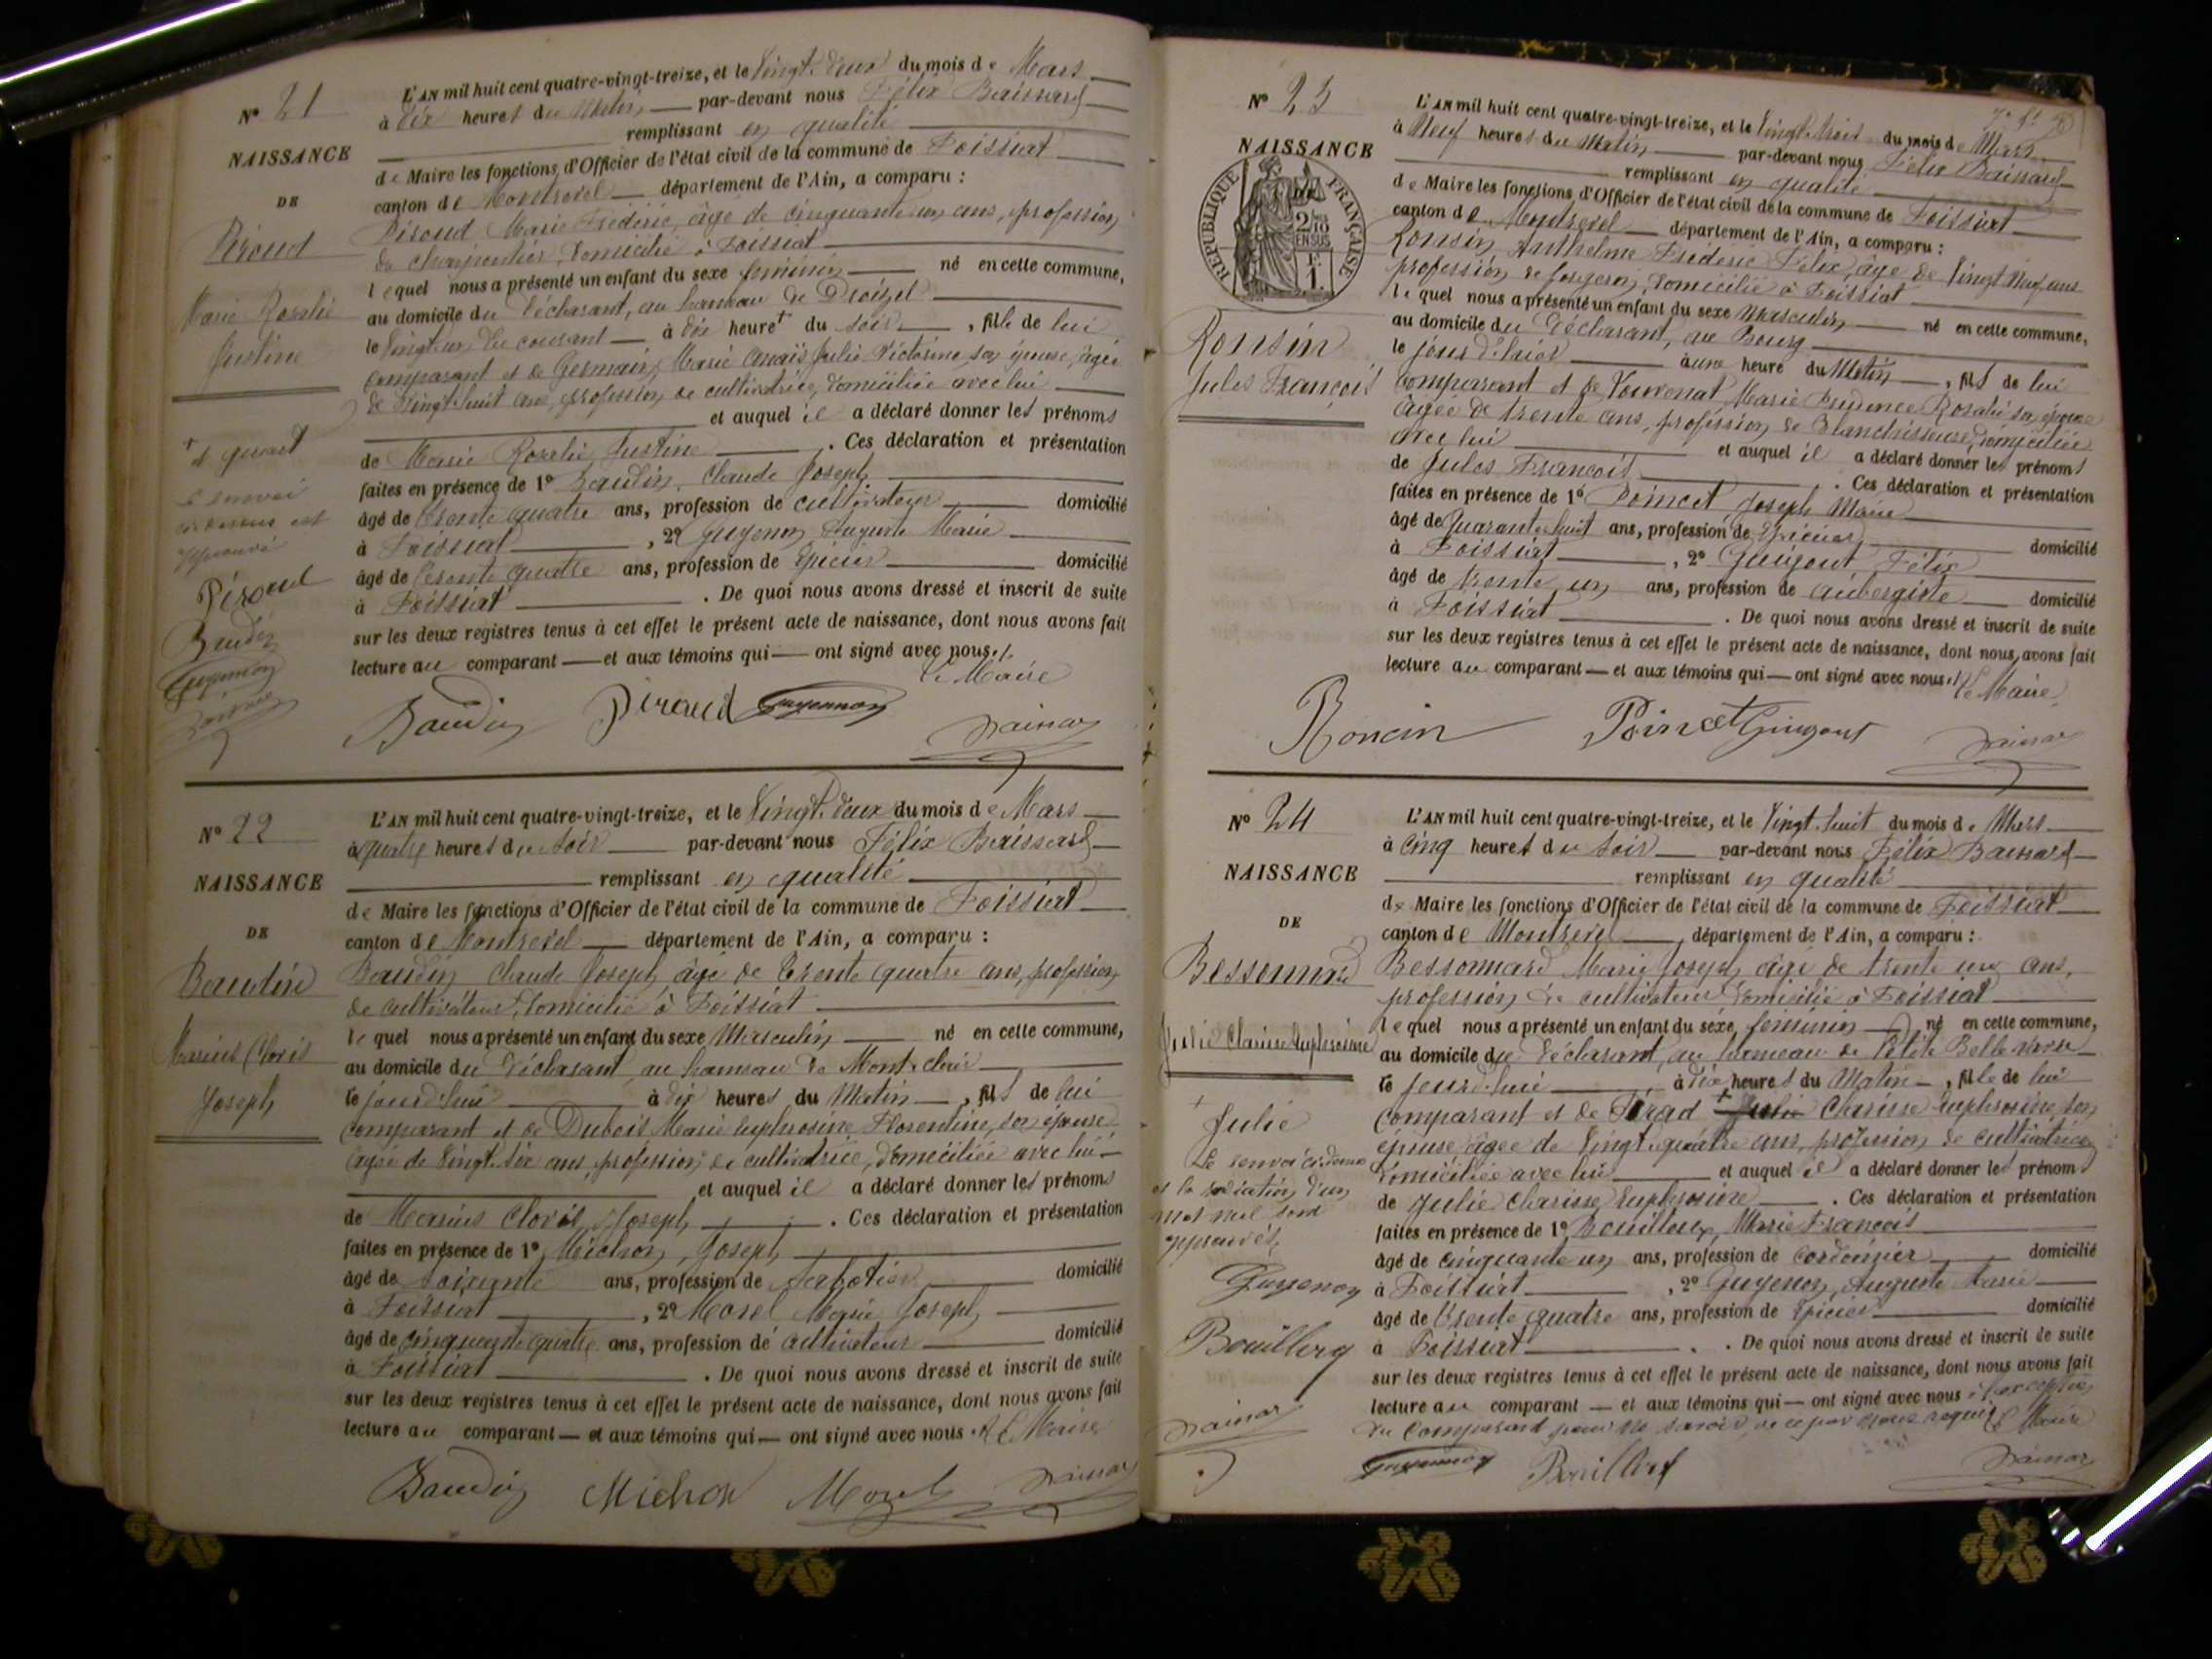 N° 21
NAISSANCE
DE
Péroud
Marie Rosalie
Justine
L'AN mil huit cent quatre-vingt-treize, et le Vingt-deux du mois de Mars
à dix heures du Matin par-devant nous Félix Baissard
remplissant en qualité
de Maire les fonctions d'Officier de l'état civil de la commune de Foissiat
canton de Montrevel département de l'Ain, a comparu :
Péroud Marie Frédéric, âgé de Cinquante un ans, profession
de charpentier, domicilié à Foissiat
lequel nous a présenté un enfant du sexe féminin né en cette commune,
au domicile du déclarant, au hameau de
le Vingt un du courant à dix heures + du soir, fille de lui
comparant et de Germain, Marie Anaïs Julie Victorine, son épouse, âgée
de Vingt huit ans, profession de cultivatrice, domiciliée avec lui
et auquel il a déclaré donner les prénoms
de Marie Rosalie Justine. Ces déclaration et présentation
faites en présence de 1° Baudin, Claude Joseph
âgé de trente quatre ans, profession de cultivateur domicilié
à Foissiat, 2° Guyenon, Auguste Marie
âgé de trente quatre ans, profession de Epicier domicilié
à Foissiat. De quoi nous avons dressé et inscrit de suite
sur les deux registres tenus à cet effet le présent acte de naissance, dont nous avons fait
lecture au comparant et aux témoins qui ont signé avec nous.
Le Maire
+ et quart
Le renvoi
ci-dessus est
approuvé
Péroud
Baudin
Guyennon
Baudin Péroud Guyennon
N° 22
NAISSANCE
DE
Baudin
Marius Clovis
Joseph
L'AN mil huit cent quatre-vingt-treize, et le Vingt-deux du mois de Mars
à quatre heures du soir par-devant nous Félix Baissard
remplissant en qualité
de Maire les fonctions d'Officier de l'état civil de la commune de Foissiat
canton de Montrevel département de l'Ain, a comparu :
Baudin Claude Joseph, âgé de trente quatre ans, profession
de cultivateur, domicilié à Foissiat
lequel nous a présenté un enfant du sexe Masculin né en cette commune,
au domicile du déclarant, au hameau de Mont-clair
le jourd'hui à dix heures du Matin, fils de lui
comparant et de Dubois Marie Euphrosine Florentine, son épouse
âgée de Vingt six ans, profession de cultivatrice, domiciliée avec lui
et auquel il a déclaré donner les prénoms
de Marius Clovis Joseph. Ces déclaration et présentation
faites en présence de 1° Michon, Joseph
âgé de soixante ans, profession de sabotier domicilié
à Foissiat, 2° Morel Marie Joseph
âgé de cinquante quatre ans, profession de cultivateur domicilié
à Foissiat. De quoi nous avons dressé et inscrit de suite
sur les deux registres tenus à cet effet le présent acte de naissance, dont nous avons fait
lecture au comparant et aux témoins qui ont signé avec nous. Le Maire
Baudin Michon Morel
N° 23
NAISSANCE
DE
RÉPUBLIQUE FRANÇAISE
2/10
EN SUS
1
Ronsin
Jules François
L'AN mil huit cent quatre-vingt-treize, et le Vingt-trois du mois de Mars
à Neuf heures du Matin par-devant nous Félix Baissard
remplissant en qualité
de Maire les fonctions d'Officier de l'état civil de la commune de Foissiat
canton de Montrevel département de l'Ain, a comparu :
Ronsin Anthelme Frédéric Félix, âgé de Vingt Neuf ans
profession de forgeron, domicilié à Foissiat
lequel nous a présenté un enfant du sexe Masculin né en cette commune,
au domicile du déclarant, au Bourg
le jour d'hier à une heure du Matin, fils de lui
comparant et de Vouvenat Marie Prudence Rosalie son épouse
âgée de trente ans, profession de Blanchisseuse, domiciliée
avec lui et auquel il a déclaré donner les prénoms
de Jules François. Ces déclaration et présentation
faites en présence de 1° Poincet Joseph Marie
âgé de Quarante huit ans, profession de Epicier domicilié
à Foissiat, 2° Guigout Félix
âgé de trente un ans, profession de aubergiste domicilié
à Foissiat. De quoi nous avons dressé et inscrit de suite
sur les deux registres tenus à cet effet le présent acte de naissance, dont nous avons fait
lecture au comparant et aux témoins qui ont signé avec nous. Le Maire
Roncin Poincet Guigout
N° 24
NAISSANCE
DE
Bessonnard
Julie Clarisse Euphrosine
L'AN mil huit cent quatre-vingt-treize, et le Vingt-huit du mois de Mars
à Cinq heures du soir par-devant nous Félix Baissard
remplissant en qualité
de Maire les fonctions d'Officier de l'état civil de la commune de Foissiat
canton de Montrevel département de l'Ain, a comparu :
Bessonnard Marie Joseph, âgé de trente un ans,
profession de cultivateur, domicilié à Foissiat
lequel nous a présenté un enfant du sexe féminin né en cette commune,
au domicile du déclarant, au hameau de Petite Belle
le jourd'hui à dix heures du Matin, fille de lui
comparant et de + Julie Clarisse Euphrosine, son
épouse âgée de Vingt-quatre ans, profession de cultivatrice
domiciliée avec lui et auquel il a déclaré donner les prénoms
de Julie Clarisse Euphrosine. Ces déclaration et présentation
faites en présence de 1° Bouilloux, Marie François
âgé de cinquante un ans, profession de cordonnier domicilié
à Foissiat, 2° Guyenon, Auguste Marie
âgé de trente quatre ans, profession de Epicier domicilié
à Foissiat. De quoi nous avons dressé et inscrit de suite
sur les deux registres tenus à cet effet le présent acte de naissance, dont nous avons fait
lecture au comparant et aux témoins qui ont signé avec nous à l'exception
du comparant pour ne savoir de ce par nous requis. Le Maire
+
Julie
Le renvoi ci-dessus
et la radiation d'un
mot nul sont
approuvés.
Guyenon